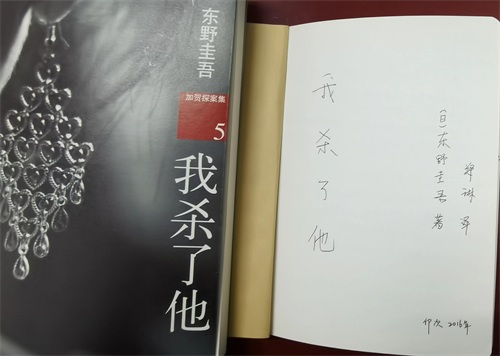 东野圭吾
加贺探案集
5
我杀了他
我杀了他
（日）东野圭吾 著
郑琳 译
印次 2016年